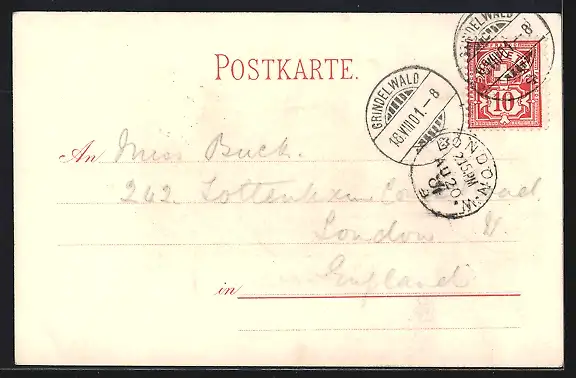 POSTKARTE.
GRINDELWALD
18 VIII 01.-8
GRINDELWALD
-8
10
LONDON.W.
2.15 PM
AU 20
01
An Miss Buck.
242. Tottenham Court Road
London W.
England
in